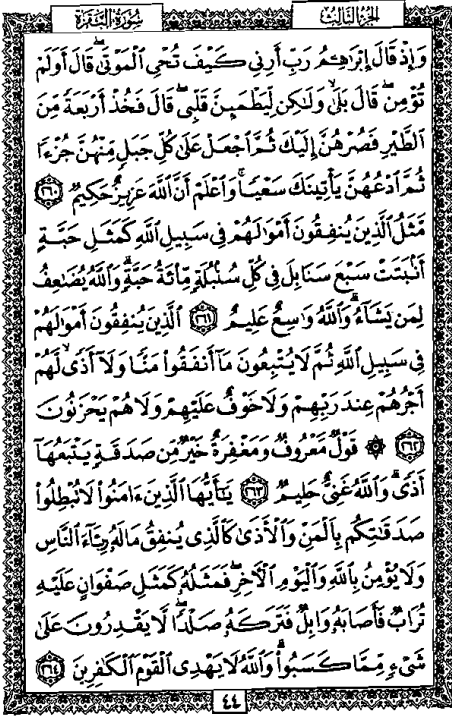 الجزء الثالث
سورة البقرة
وَإِذْ قَالَ إِبْرَٰهِـۧمُ رَبِّ أَرِنِى كَيْفَ تُحْىِ ٱلْمَوْتَىٰ ۖ قَالَ أَوَلَمْ
تُؤْمِن ۖ قَالَ بَلَىٰ وَلَٰكِن لِّيَطْمَئِنَّ قَلْبِى ۖ قَالَ فَخُذْ أَرْبَعَةً مِّنَ
ٱلطَّيْرِ فَصُرْهُنَّ إِلَيْكَ ثُمَّ ٱجْعَلْ عَلَىٰ كُلِّ جَبَلٍ مِّنْهُنَّ جُزْءًا
ثُمَّ ٱدْعُهُنَّ يَأْتِينَكَ سَعْيًا ۚ وَٱعْلَمْ أَنَّ ٱللَّهَ عَزِيزٌ حَكِيمٌ ٢٦٠
مَّثَلُ ٱلَّذِينَ يُنفِقُونَ أَمْوَٰلَهُمْ فِى سَبِيلِ ٱللَّهِ كَمَثَلِ حَبَّةٍ
أَنۢبَتَتْ سَبْعَ سَنَابِلَ فِى كُلِّ سُنۢبُلَةٍ مِّا۟ئَةُ حَبَّةٍ ۗ وَٱللَّهُ يُضَٰعِفُ
لِمَن يَشَآءُ ۗ وَٱللَّهُ وَٰسِعٌ عَلِيمٌ ٢٦١ ٱلَّذِينَ يُنفِقُونَ أَمْوَٰلَهُمْ
فِى سَبِيلِ ٱللَّهِ ثُمَّ لَا يُتْبِعُونَ مَآ أَنفَقُوا۟ مَنًّا وَلَآ أَذًى ۙ لَّهُمْ
أَجْرُهُمْ عِندَ رَبِّهِمْ وَلَا خَوْفٌ عَلَيْهِمْ وَلَا هُمْ يَحْزَنُونَ
٢٦٢ ۞ قَوْلٌ مَّعْرُوفٌ وَمَغْفِرَةٌ خَيْرٌ مِّن صَدَقَةٍ يَتْبَعُهَآ
أَذًى ۗ وَٱللَّهُ غَنِىٌّ حَلِيمٌ ٢٦٣ يَٰٓأَيُّهَا ٱلَّذِينَ ءَامَنُوا۟ لَا تُبْطِلُوا۟
صَدَقَٰتِكُم بِٱلْمَنِّ وَٱلْأَذَىٰ كَٱلَّذِى يُنفِقُ مَالَهُۥ رِئَآءَ ٱلنَّاسِ
وَلَا يُؤْمِنُ بِٱللَّهِ وَٱلْيَوْمِ ٱلْءَاخِرِ ۖ فَمَثَلُهُۥ كَمَثَلِ صَفْوَانٍ عَلَيْهِ
تُرَابٌ فَأَصَابَهُۥ وَابِلٌ فَتَرَكَهُۥ صَلْدًا ۖ لَّا يَقْدِرُونَ عَلَىٰ
شَىْءٍ مِّمَّا كَسَبُوا۟ ۗ وَٱللَّهُ لَا يَهْدِى ٱلْقَوْمَ ٱلْكَٰفِرِينَ ٢٦٤
٤٤